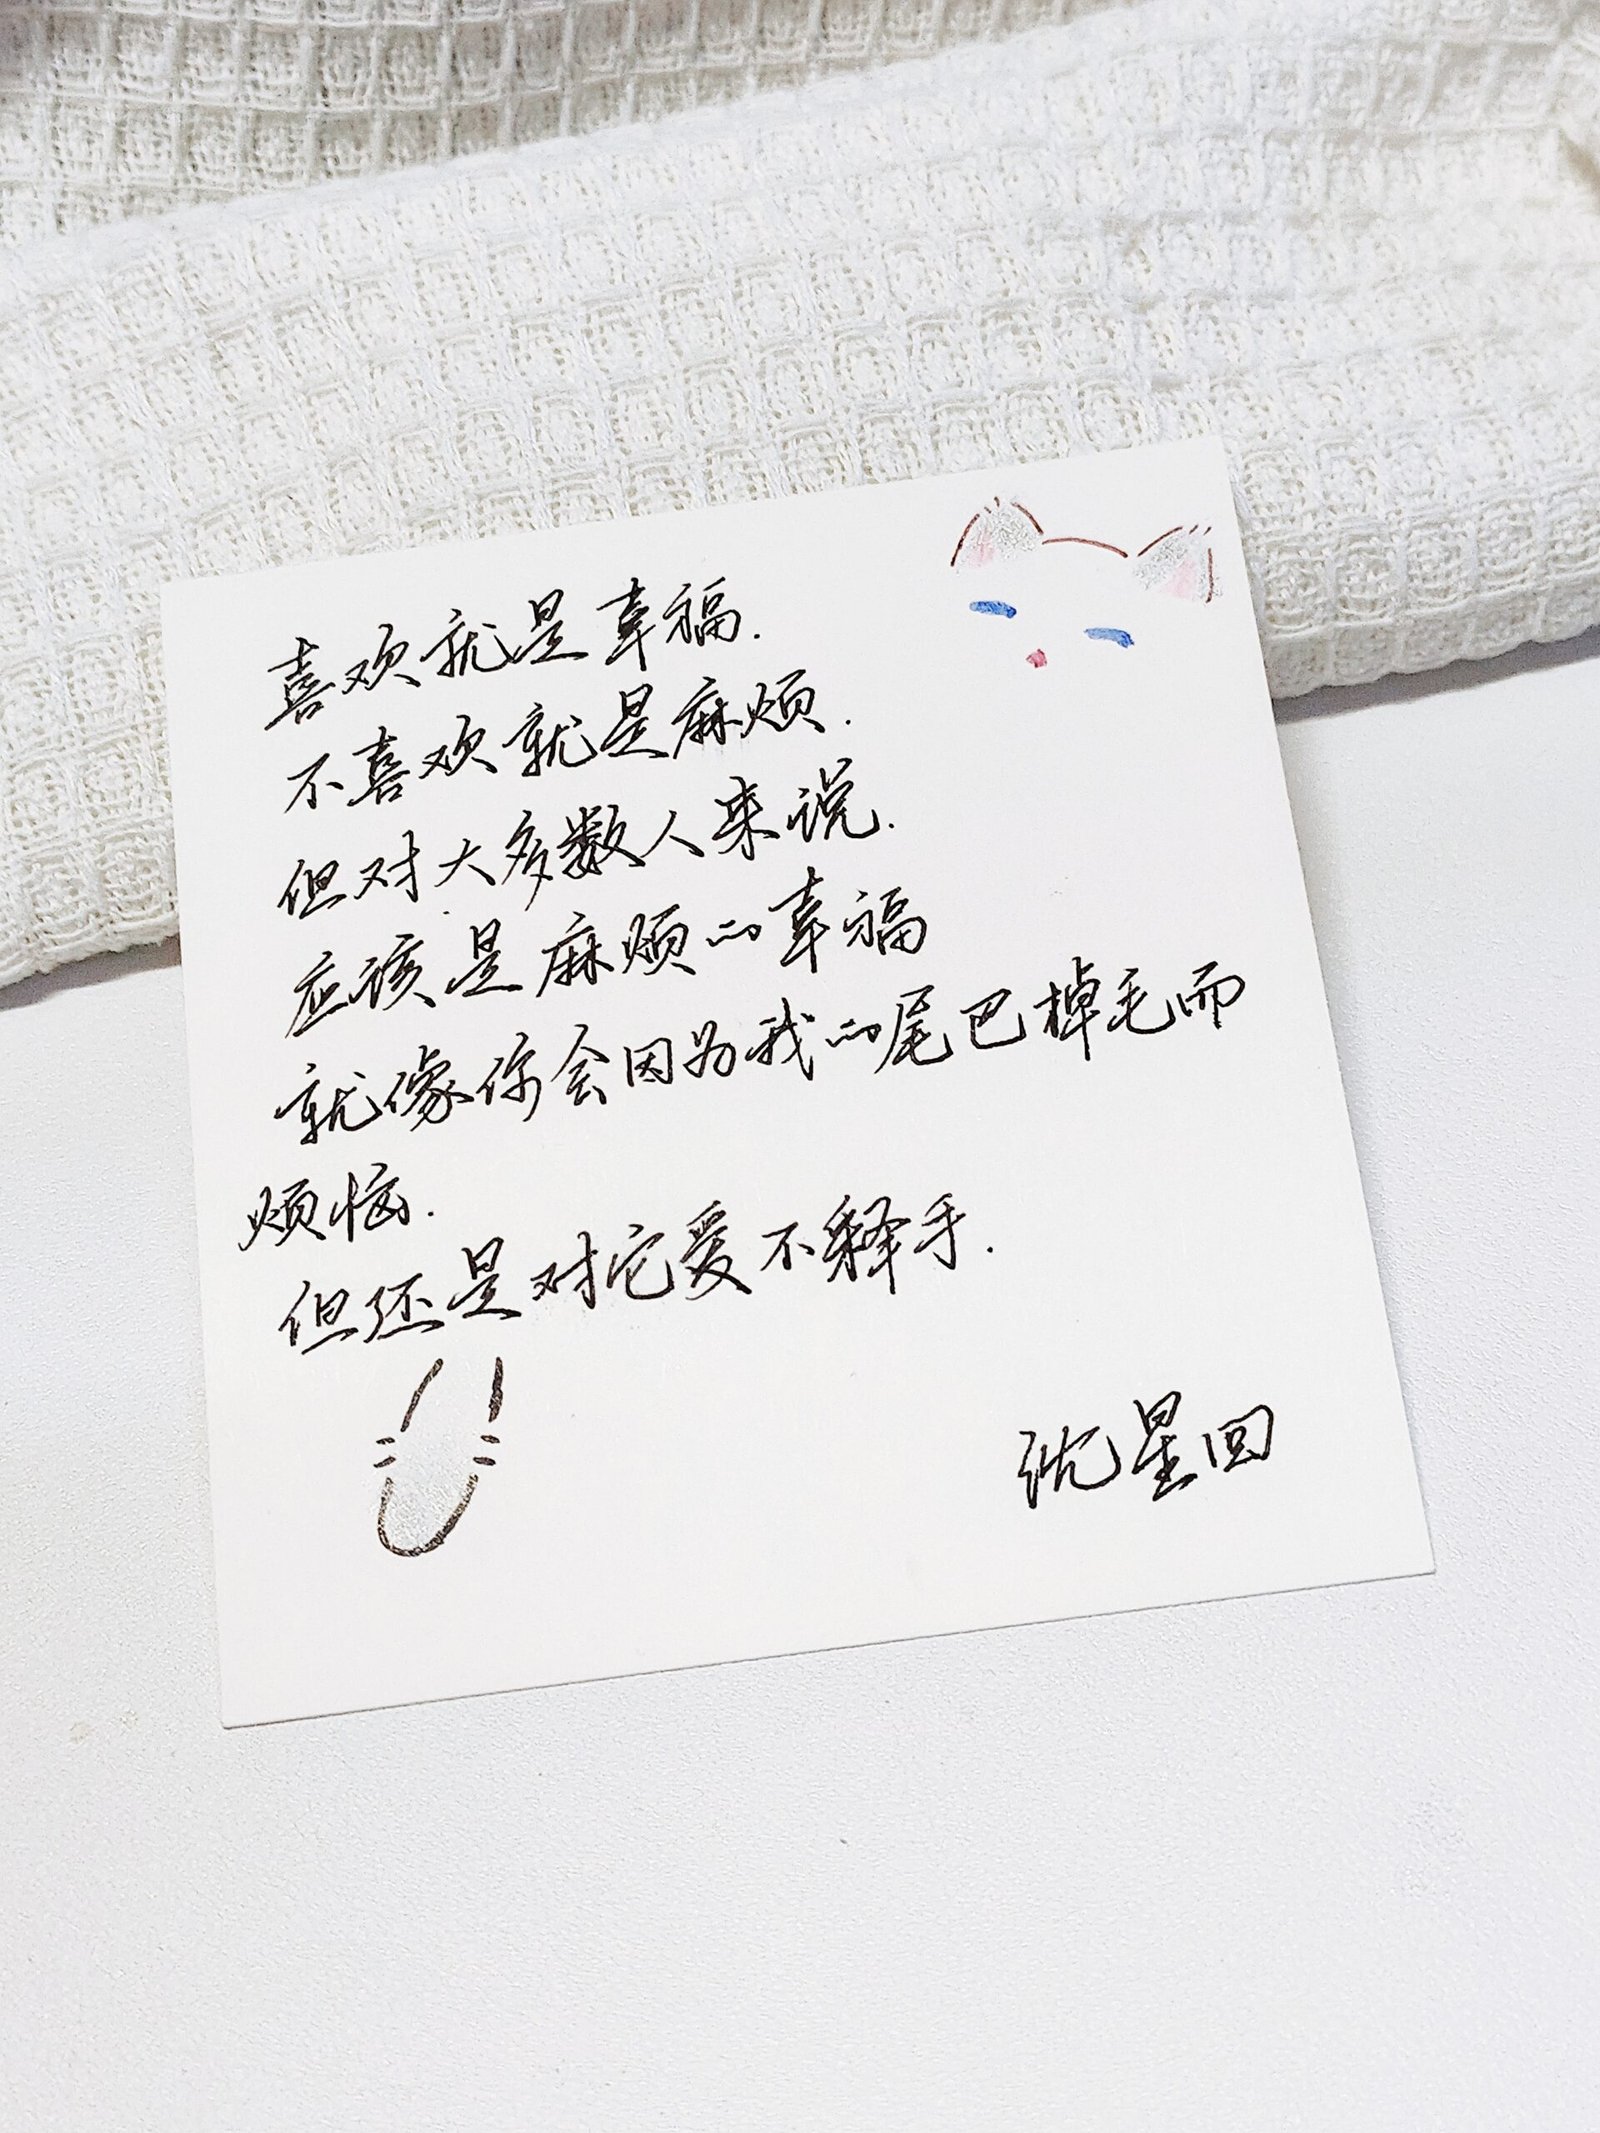 喜欢就是幸福.
不喜欢就是麻烦.
但对大多数人来说.
应该是麻烦的幸福
就像你会因为我的尾巴掉毛而
烦恼.
但还是对它爱不释手.
沈星回